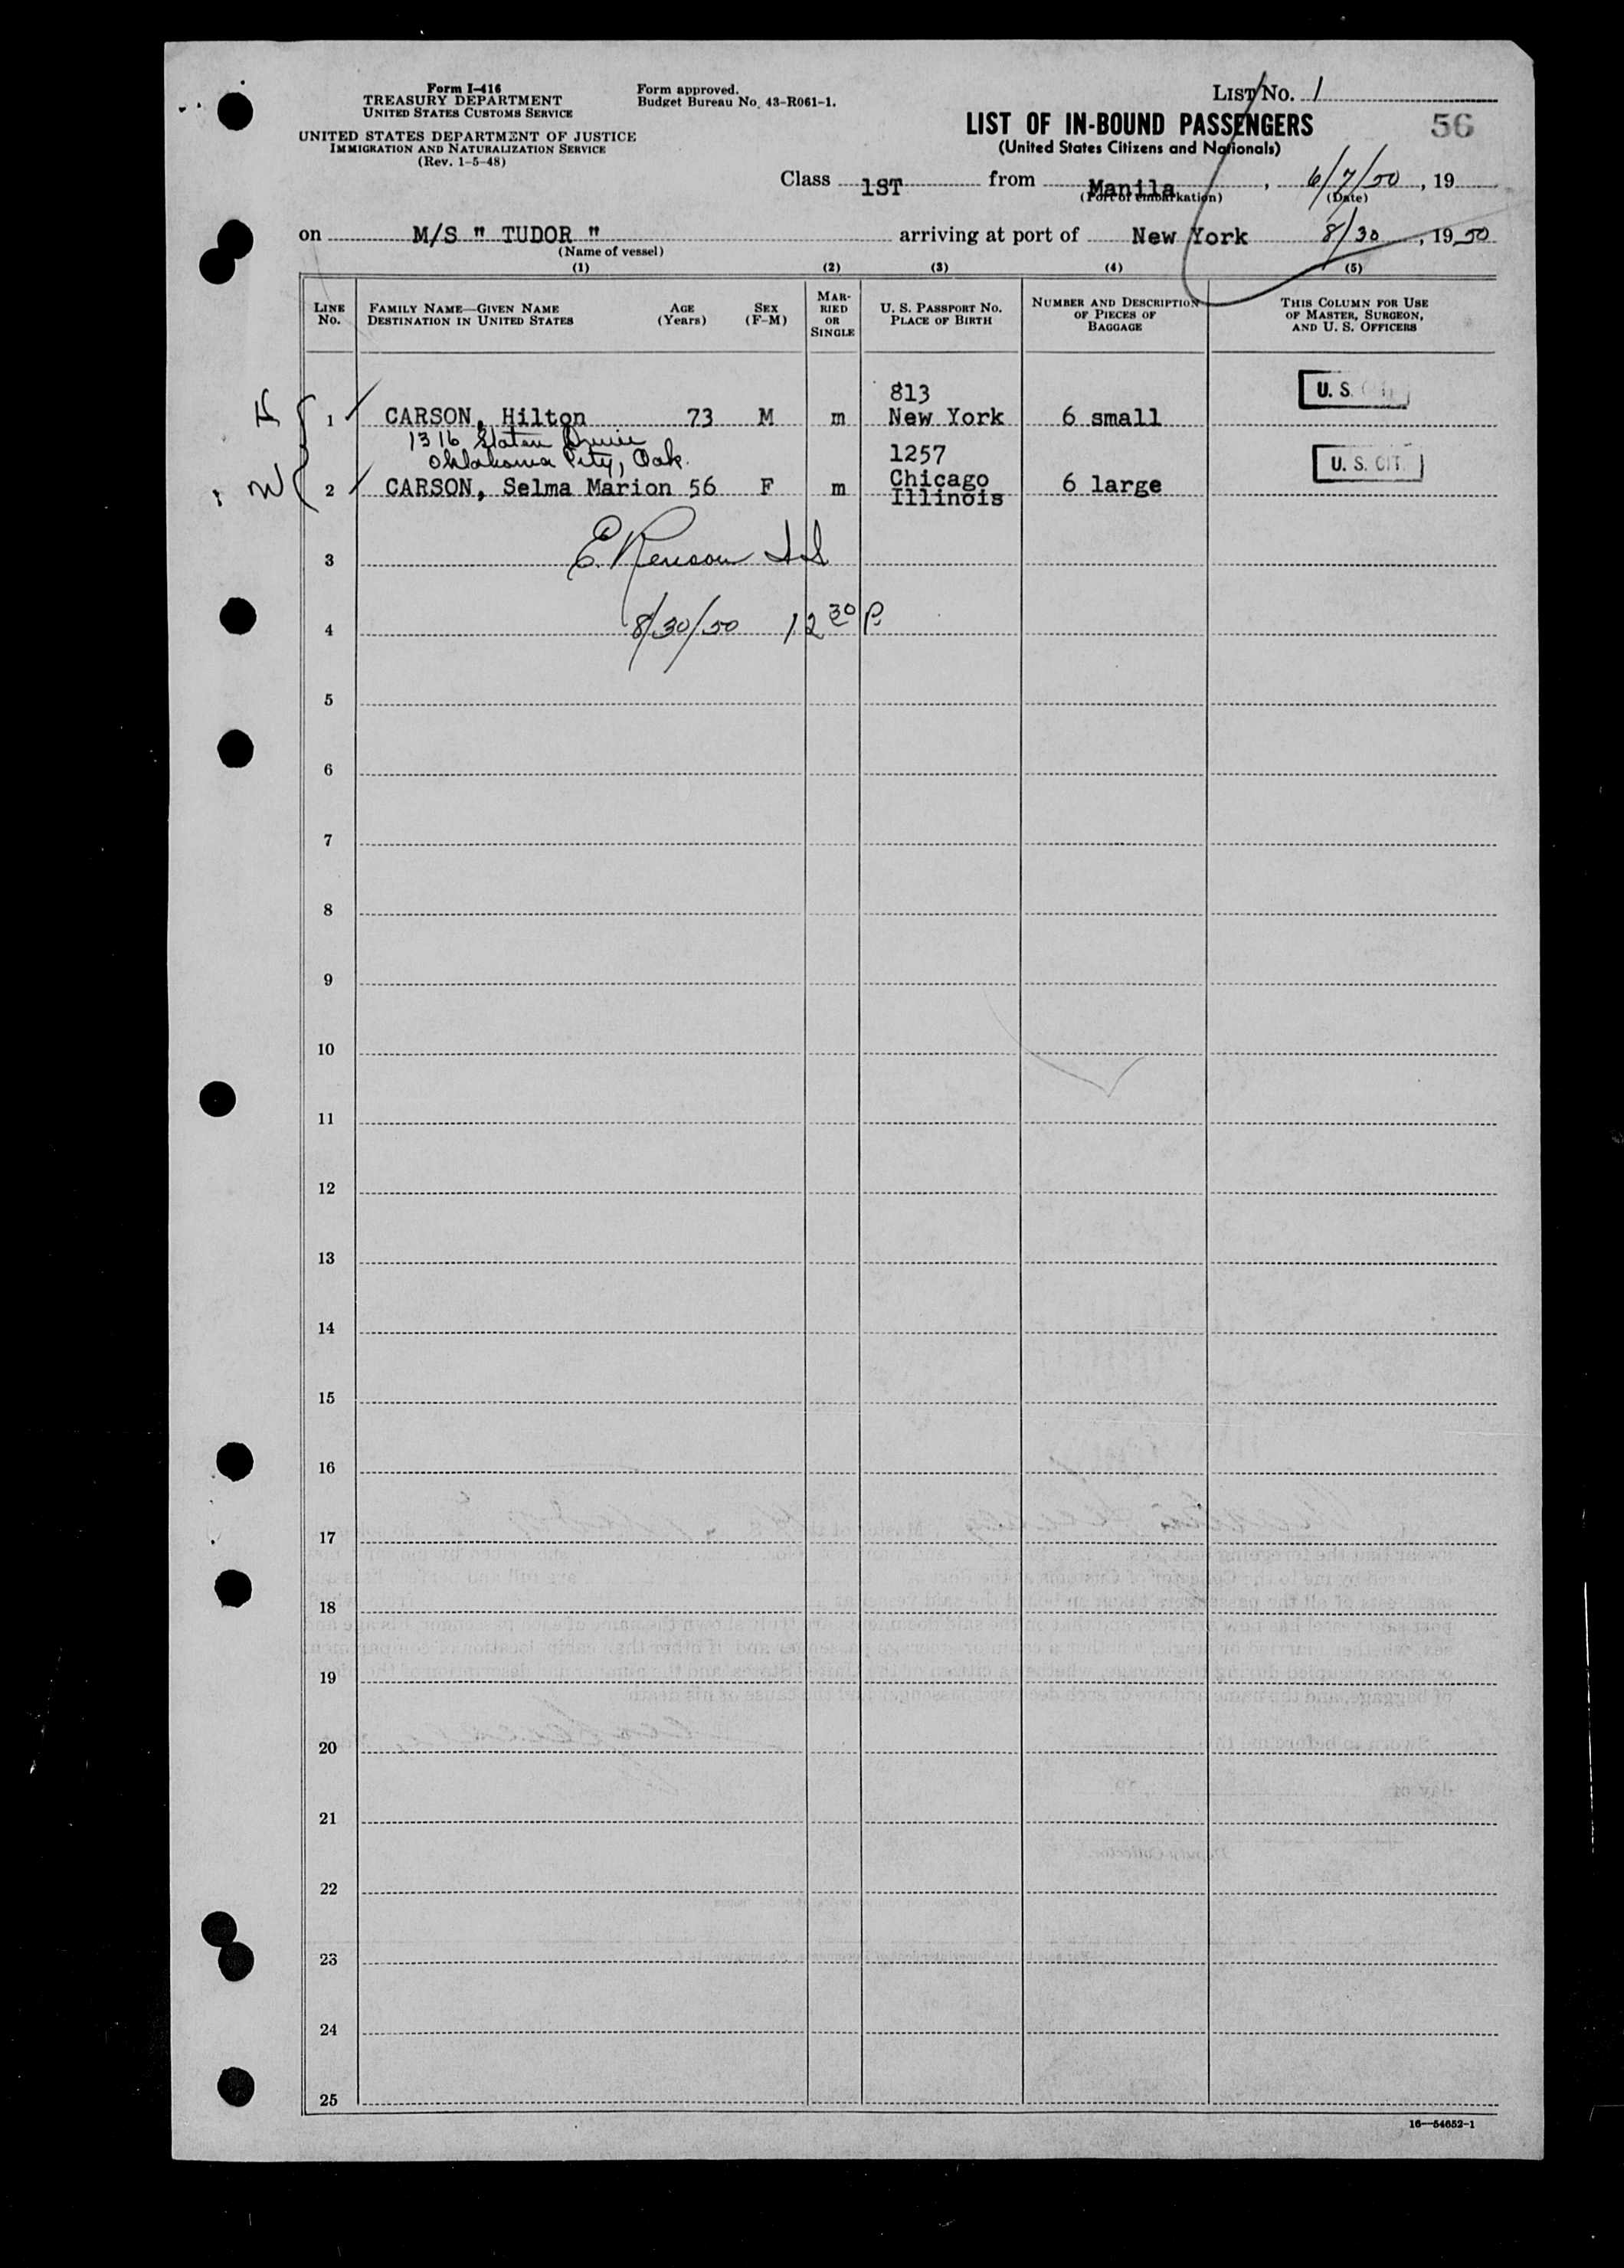 Form I-416
TREASURY DEPARTMENT
UNITED STATES CUSTOMS SERVICE
UNITED STATES DEPARTMENT OF JUSTICE
IMMIGRATION AND NATURALIZATION SERVICE
(Rev. 1-5-48)
Form approved.
Budget Bureau No. 43-R061-1.
LIST No. 1
LIST OF IN-BOUND PASSENGERS
56
(United States Citizens and Nationals)
Class 1ST from Manila, 6/7/50, 19
(Port of embarkation) (Date)
on M/S " TUDOR " arriving at port of New York 8/30, 1950
(Name of vessel)
(1) (2) (3) (4) (5)
LINE No.
FAMILY NAME—GIVEN NAME
DESTINATION IN UNITED STATES
AGE (Years)
SEX (F-M)
MARRIED OR SINGLE
U. S. PASSPORT No.
PLACE OF BIRTH
NUMBER AND DESCRIPTION OF PIECES OF BAGGAGE
THIS COLUMN FOR USE OF MASTER, SURGEON, AND U. S. OFFICERS
813
U. S.
H 1 CARSON, Hilton 73 M m New York 6 small
1316
Oklahoma City, Oak.
1257
U. S. CIT.
W 2 CARSON, Selma Marion 56 F m Chicago Illinois 6 large
3 E.
4 8/30/50 12 30 P
5
6
7
8
9
10
11
12
13
14
15
16
17
18
19
20
21
22
23
24
25
16—54652-1